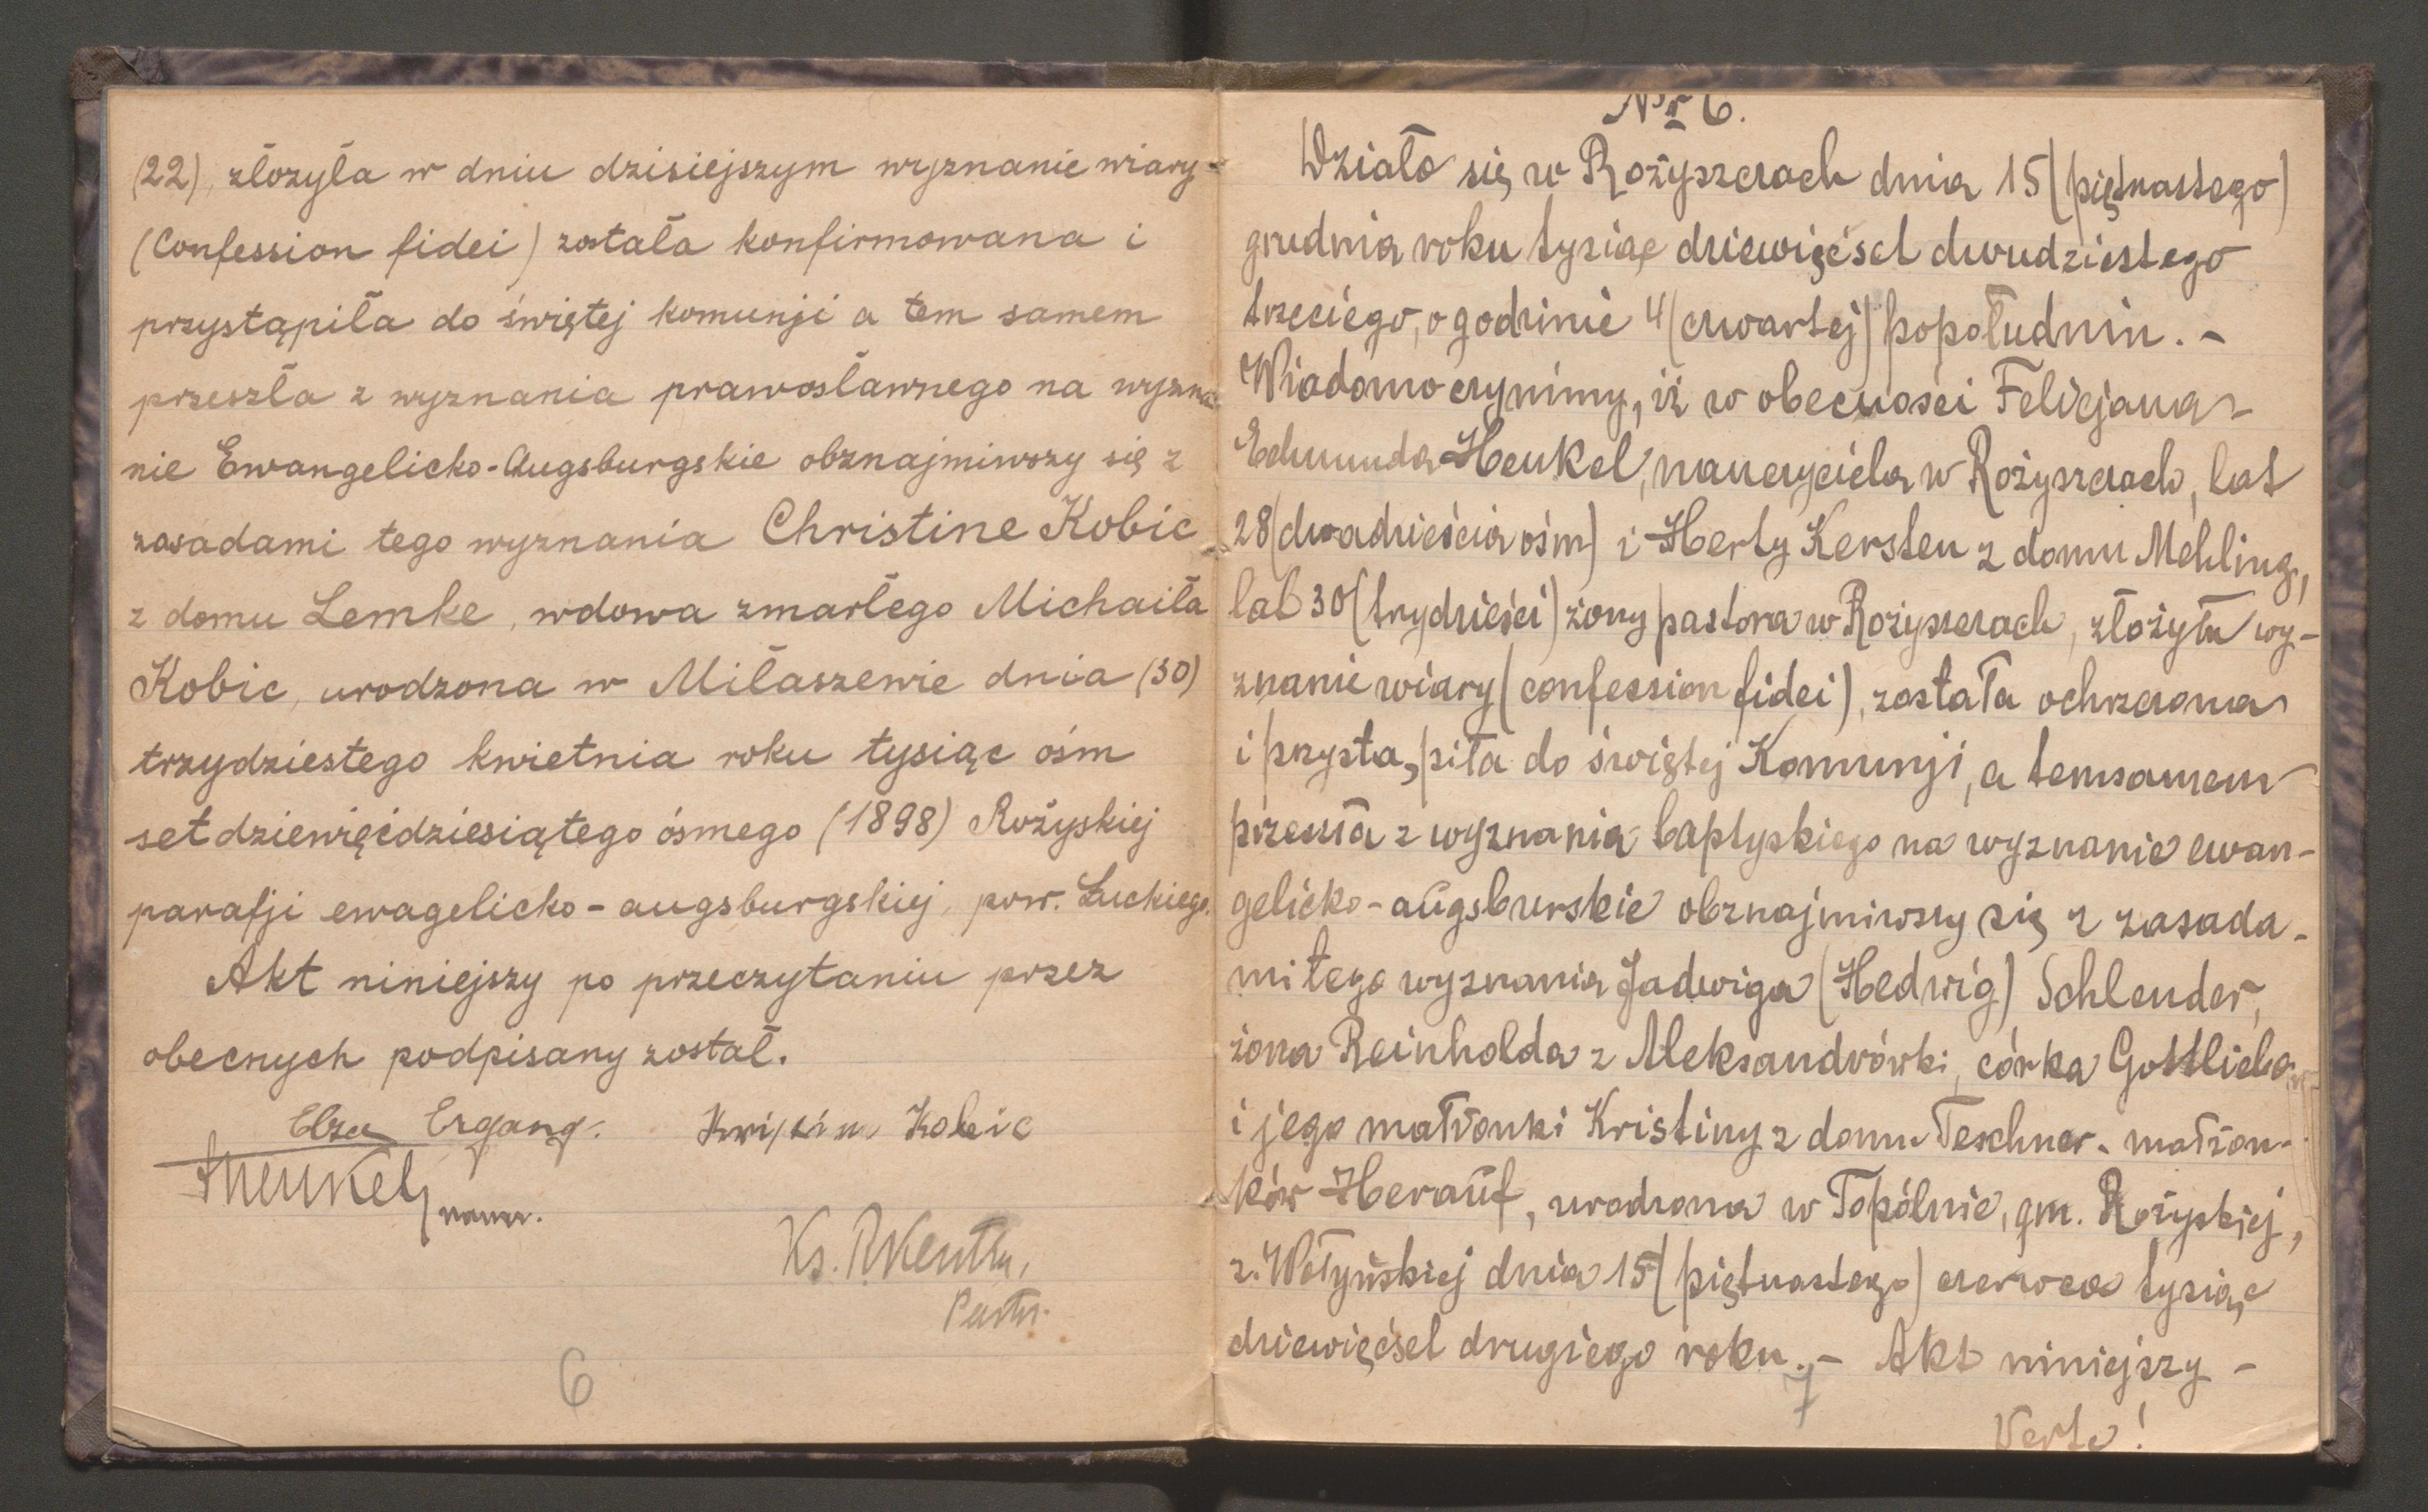 (22), złożyła w dniu dzisiejszym wyznanie wiary-
(Confession fidei) została konfirmowana i
przystąpiła do świętej komunji a tem samem
przeszła z wyznania prawosławnego na wyzna
nie Ewangelicko-Augsburgskie obznajmiwszy się z
zasadami tego wyznania Christine Kobic
z domu Lemke, wdowa zmarłego Michaiła
Kobic, urodzona w Miłaszewie dnia (30)
trzydziestego kwietnia roku tysiąc ośm
set dziewięćdziesiątego ósmego (1898) Rożyskiej
parafji ewagelicko-augsburgskiej, pow. Łuckiego.
Akt niniejszy po przeczytaniu przez
obecnych podpisany został.
Elza Ergang. Kobic
Henkel naucz.
Ks.
Pastor
6
Nr 6.
Działo się w Rożyszczach dnia 15 (piętnastego)
grudnia roku tysiąc dziewięćset dwudziestego
trzeciego, o godzinie 4 (czwartej) popołudniu. -
Wiadomo czynimy, iż w obecności Felicjana-
Edmunda Henkel, nauczyciela w Rożyszczach, lat
28 (dwadzieścia ośm) i Herty Kersten z domu Mehling,
lat 30 (trzydzieści) żony pastora w Rożyszczach, złożyła wy-
znanie wiary (confession fidei), została ochrzczona
i przystąpiła do świętej Komunji, a temsamem
przeszła z wyznania baptyskiego na wyznanie ewan-
gelicko-augsburskie obznajmiwszy się z zasada-
mi tego wyznania Jadwiga (Hedwig) Schlender,
żona Reinholda z Aleksandrówki, córka Gottlieba
i jego małżonki Kristiny z domu Teschner - małżon-
ków Herauf, urodzona w Topólnie, gm. Rożyskiej,
z. Wołyńskiej dnia 15 (piętnastego) czerwca tysiąc
dziewięćset drugiego roku. - Akt niniejszy -
7
Verte!